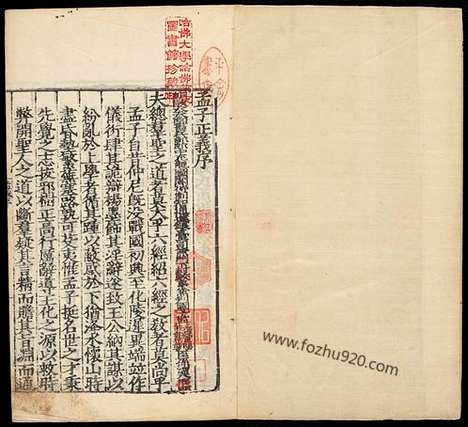 哈佛大學哈佛燕京
圖書館珍藏印
孟子正義序
夫緫羣聖之道者莫大乎六經紹六經之教者莫尚乎
孟子自昔仲尼既沒戰國初興至化陵遲異端並作
儀衍肆其詭辯楊墨飾其淫辭遂致王公納其謀以
紛亂於上學者循其踵以蔽惑於下猶洚水懷山時
盡昏墊繁蕪塞路孰可芟夷惟孟子挺名世之才秉
先覺之志拔邪樹正高行厲辭導王化之源以救時
弊開聖人之道以斷羣疑其言精而贍其旨淵而通
www.fozhu920.com